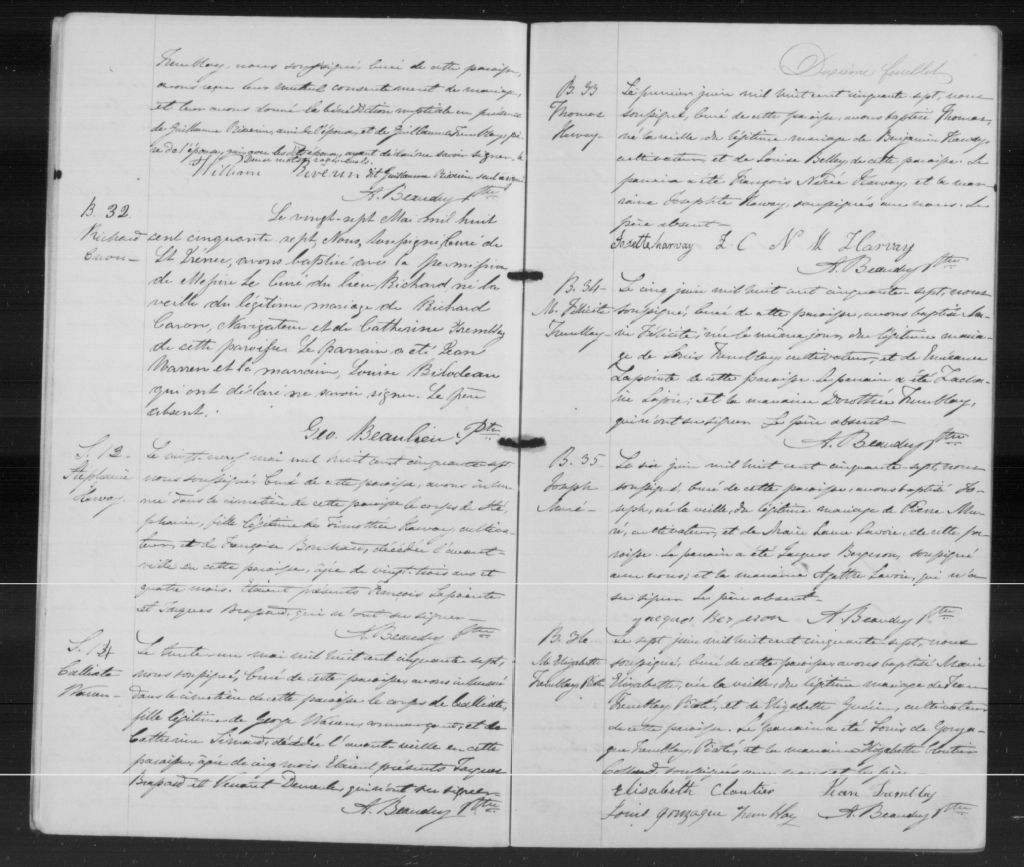 Tremblay, nous soussigné, Curé de cette paroisse,
avons reçu leur mutuel consentement de mariage,
et leur avons donné la bénédiction nuptiale en présence
de Guillaume Riverin, ami de l'époux, et de Guillaume Tremblay, pè-
re de l'épouse,
William Riverin dit Guillaume Riverin
A. Beaudry Ptre
B. 32
Richard
Caron
Le vingt-sept Mai mil huit
cent cinquante sept, Nous, soussigné, Curé de
St Irénée, avons baptisé avec la permission
de Messire le Curé du lieu, Richard né la
veille du légitime mariage de Richard
Caron, Navigateur et de Catherine Tremblay
de cette paroisse. Le parrain a été Jean
Warren et la marraine, Louise Bilodeau
qui ont déclaré ne savoir signer. Le père
absent.
Geo. Beaulieu Ptre
S. 13
Stéphanie
Harvay
Le vingt-neuf mai mil huit cent cinquante sept,
nous soussigné, Curé de cette paroisse, avons inhu-
mé dans le cimetière de cette paroisse le corps de Sté-
phanie, fille légitime de Timothée Harvay, cultiva-
teur, et de Françoise Bouchard, décédée l'avant-
veille en cette paroisse, âgée de vingt-trois ans et
quatre mois. Etaient présents François Lapointe
et Jacques Brassard, qui n'ont su signer-
A. Beaudry Ptre
S. 14
Calliste
Waren
Le trente-un mai mil huit cent cinquante sept,
nous soussigné, Curé de cette paroisse avons inhumé
dans le cimetière de cette paroisse le corps de Calliste,
fille légitime de George Waren, commerçant, et de
Catherine Simard, décédée l'avant-veille en cette
paroisse, âgée de cinq mois. Etaient présents Jacques
Brassard et Venant Demeules, qui n'ont su signer-
A. Beaudry Ptre
Dixième feuillet
B. 33
Thomas
Harvay-
Le premier juin mil huit cent cinquante sept, nous
soussigné, Curé de cette paroisse, avons baptisé Thomas,
né la veille, du légitime mariage de Benjamin Harvay,
cultivateur, et de Louise Belley, de cette paroisse. Le
parrain a été François Nérée Harvay, et la mar-
raine Josephte Harvay, soussignés avec nous. Le
père absent-
Josette harvay F C N M Harvay
A. Beaudry Ptre
B. 34
M. Félicité
Tremblay-
Le cinq juin mil huit cent cinquante-sept, nous
soussigné, Curé de cette paroisse, avons baptisé Ma-
rie Félicité, née le même jour, du légitime maria-
ge de Louis Tremblay, cultivateur, et de
Lapointe de cette paroisse. Le parrain a été Zacha-
rie Lajoie, et la marraine Dorothée Tremblay,
qui n'ont su signer. Le père absent-
A. Beaudry Ptre
B. 35
Joseph
Le six juin mil huit cent cinquante-sept, nous
soussigné, Curé de cette paroisse, avons baptisé Jo-
seph, né la veille, du légitime mariage de Pierre
cultivateur, et de Marie Laure Savoie, de cette pa-
roisse. Le parrain a été Jacques Bergeron, soussigné
avec nous, et la marraine Agathe Savoie, qui n'a
su signer. Le père absent-
jacques Bergeron A. Beaudry Ptre
B. 36
M. Elizabeth
Tremblay Picoté
Le sept juin mil huit cent cinquante sept, nous
soussigné, Curé de cette paroisse avons baptisé Marie
Elizabeth, née la veille, du légitime mariage de Jean
Tremblay Picoté, et de Elizabeth cultivateur
de cette paroisse. Le parrain a été Louis de Gonza-
gue Tremblay Picoté, et la marraine Elizabeth Cloutier
soussignés avec nous et le père-
Elisabeth Cloutier Jean Tremblay
Louis gonzague Tremblay A. Beaudry Ptre